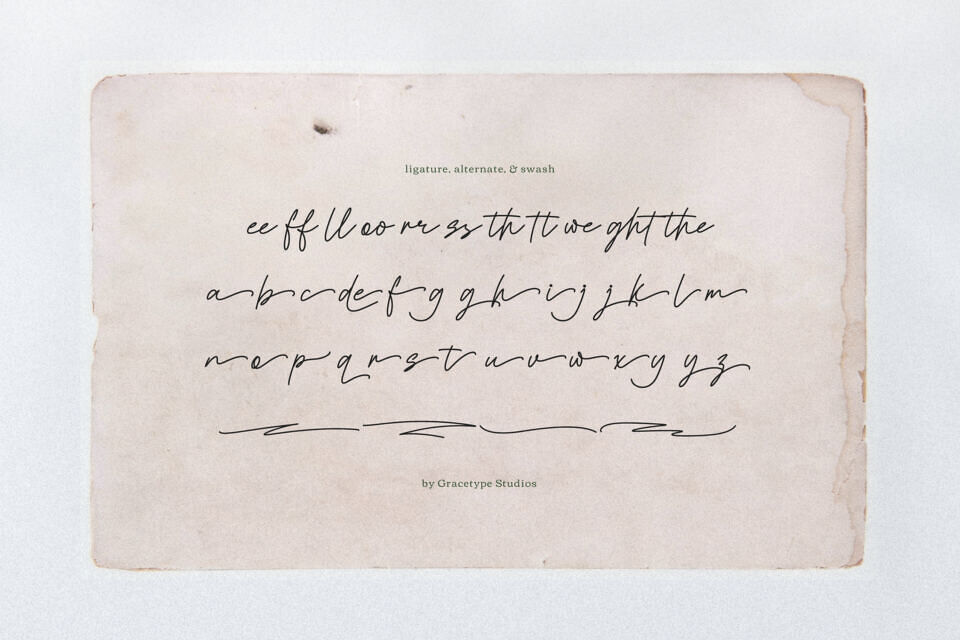 ligature, alternate, & swash
ee ff ll oo rr ss th tt we ght the
a b c d e f g g h i j j k l m
n o p q r s t u v w x y y z
by Gracetype Studios